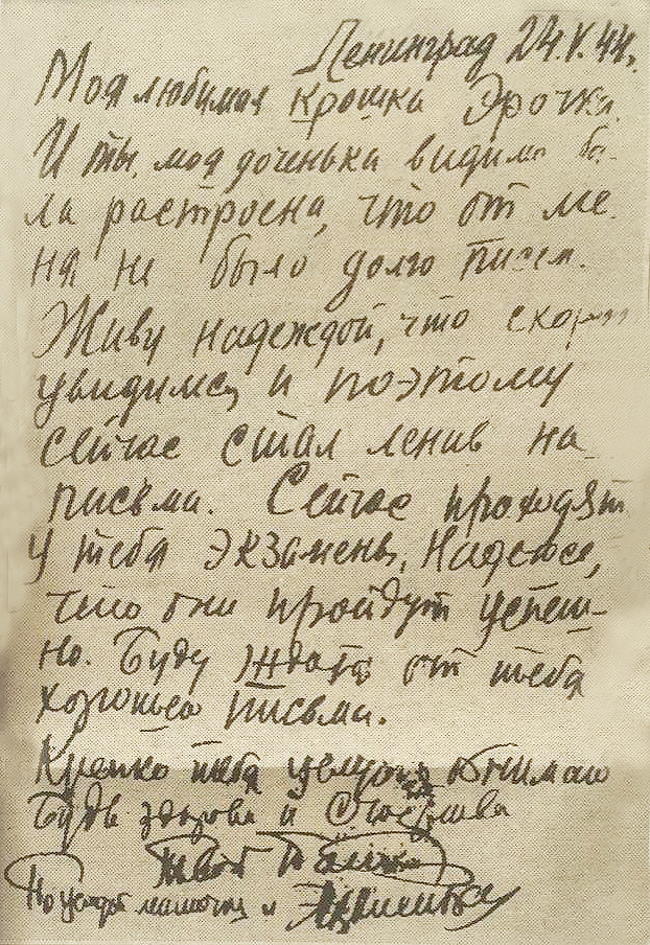 Ленинград 24.V.44.
Моя любимая Крошка Эрочка.
И ты, моя доченька видимо бы-
ла растроена, что от ме-
ня не было долго писем.
Живу надеждой, что скоро
увидимся, и поэтому
сейчас стал ленив на
письма. Сейчас проходят
у тебя экзамены, Надеюсь,
что они пройдут успеш-
но. Буду ждать от тебя
хорошего письма.
Крепко тебя целую обнимаю
Будь здорова и Счастлива
Твой Папка
Поцелуй мамочку и